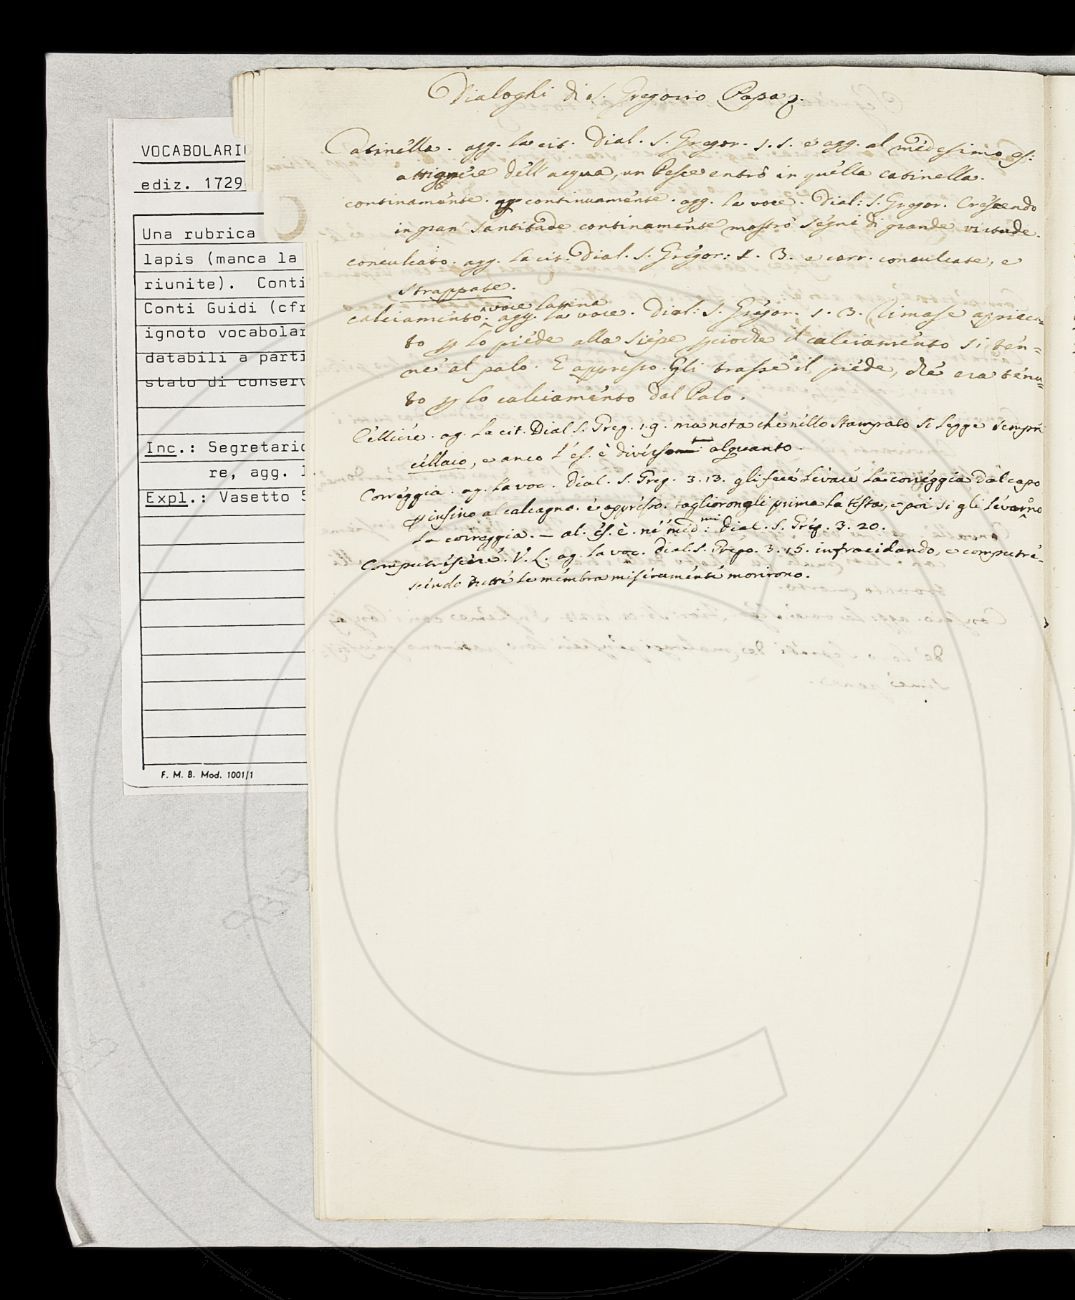 Dialoghi di S. Gregorio Papa
VOCABOLARIO
ediz. 1729
Una rubrica
lapis (manca la
riunite). Conti
Conti Guidi (cfr
ignoto vocabolar
databili a parti
stato di conserv
Inc.: Segretario
re, agg. l
Expl.: Vasetto S
F. M. B. Mod. 1001/1
C
Catinella. agg. la cit. Dial. S. Gregor. 1. 1. e agg. al medesimo es.
attignere dell'acqua, un Pesce entrò in quella catinella.
continamente. continuamente. agg. la voce. Dial. S. Gregor. Crescendo
in gran Santitade continamente mostrò segni di grande virtude.
conculcato. agg. la cit. Dial. S. Gregor. 1. 3. e corr. conculcate, e
strappate.
calciamento. voce latina agg. la voce. Dial. S. Gregor. 1. 3. rimase apicca-
to p lo piede alla siepe perciocchè il calciamento si ten-
ne al palo. E appresso. Gli trasse il piede, che era tenu-
to p lo calciamento dal Palo.
Celliere. ag. la cit. Dial. S. Greg. 1. 9. ma nota che nello stampato si legge sempre
cellaio, e anco l'es. è diverso alquanto.
Correggia. ag. la voc. Dial. S. Greg. 3. 13. gli fece levare la correggia dal capo
p infino al calcagno. e appresso. tagliorongli prima la testa, e poi si gli levarno
la correggia. — al. es. è nel med.mo Dial. S. Greg. 3. 20.
Computrescere. V. L. ag. la voc. Dial. S. Grego. 3. 15. infracidando, e computre-
scendo tutte le membra miseramente morirono.